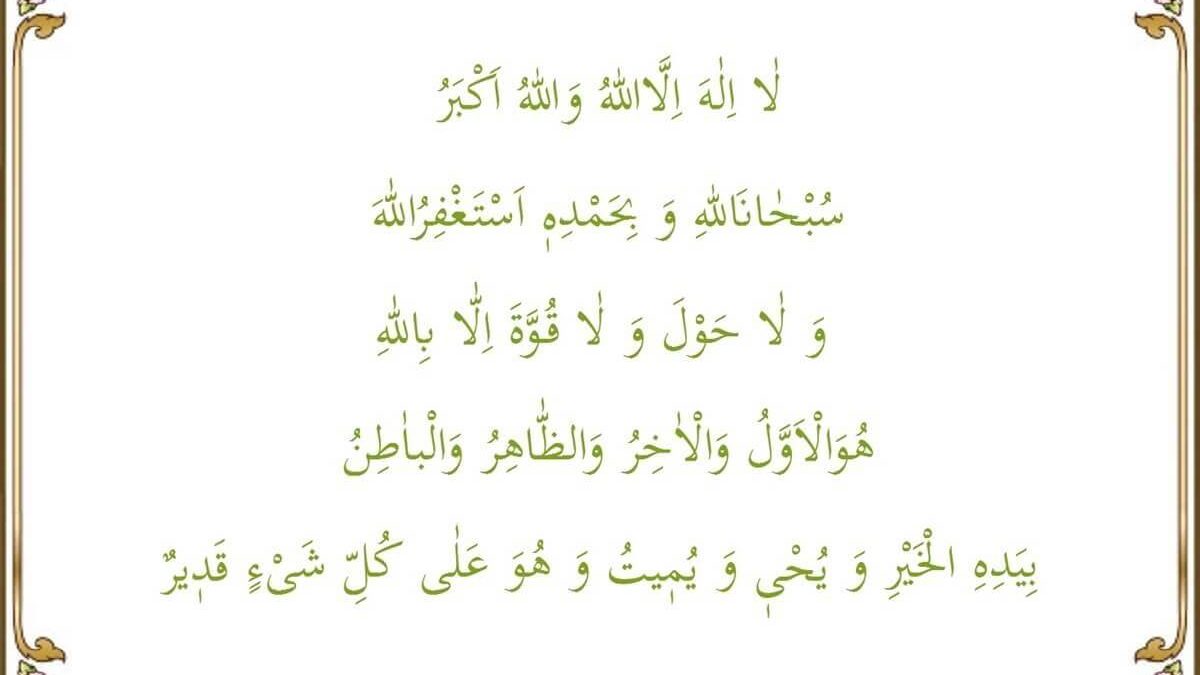 لٰا اِلٰهَ اِلَّااللهُ وَاللهُ اَكْبَرُ
سُبْحٰانَاللهِ وَ بِحَمْدِهٖ اَسْتَغْفِرُاللهَ
وَ لٰا حَوْلَ وَ لٰا قُوَّةَ اِلّٰا بِاللهِ
هُوَالْاَوَّلُ وَالْاٰخِرُ وَالظّٰاهِرُ وَالْباٰطِنُ
بِيَدِهِ الْخَيْرِ وَ يُحْيٖ وَ يُمٖيتُ وَ هُوَ عَلٰى كُلِّ شَىْءٍ قَدٖيرٌ